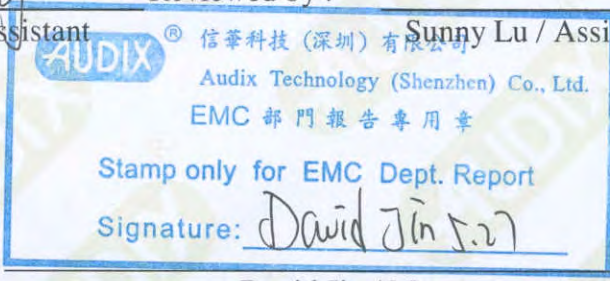 Reviewed by :
ssistant
Sunny Lu / Assi
AUDIX ® 信華科技 (深圳) 有限公司
Audix Technology (Shenzhen) Co., Ltd.
EMC 部門報告專用章
Stamp only for EMC Dept. Report
Signature: David Jin 5.27